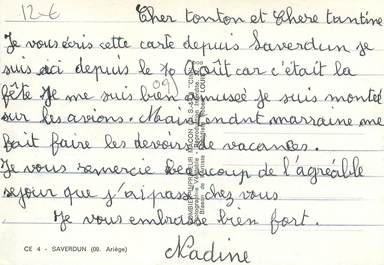 12-6
Cher tonton et Chere tantine
Je vous écris cette carte depuis Saverdun je
suis ici depuis le Août car c'était la
fête Je me suis bien amuseé je suis monteé
sur les avions. Maintendnt marraine me
fait faire les devoirs de vacances.
Je vous remercie beaucoup de l'agréable
sejour que j'ai passé chez vous
Je vous embrasse bien fort.
CE 4 - SAVERDUN (09. Ariège)
Nadine